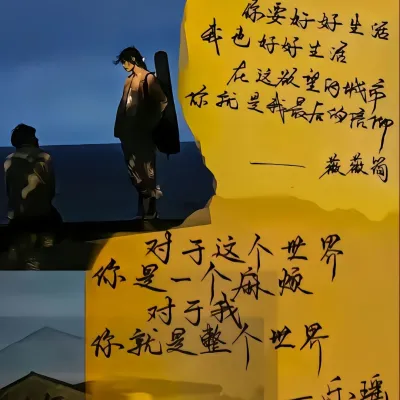 你要好好生活
我也好好生活
在这欲望的城市
你就是我最后的信仰
——薇薇简
对于这个世界
你是一个麻烦
对于我
你就是整个世界